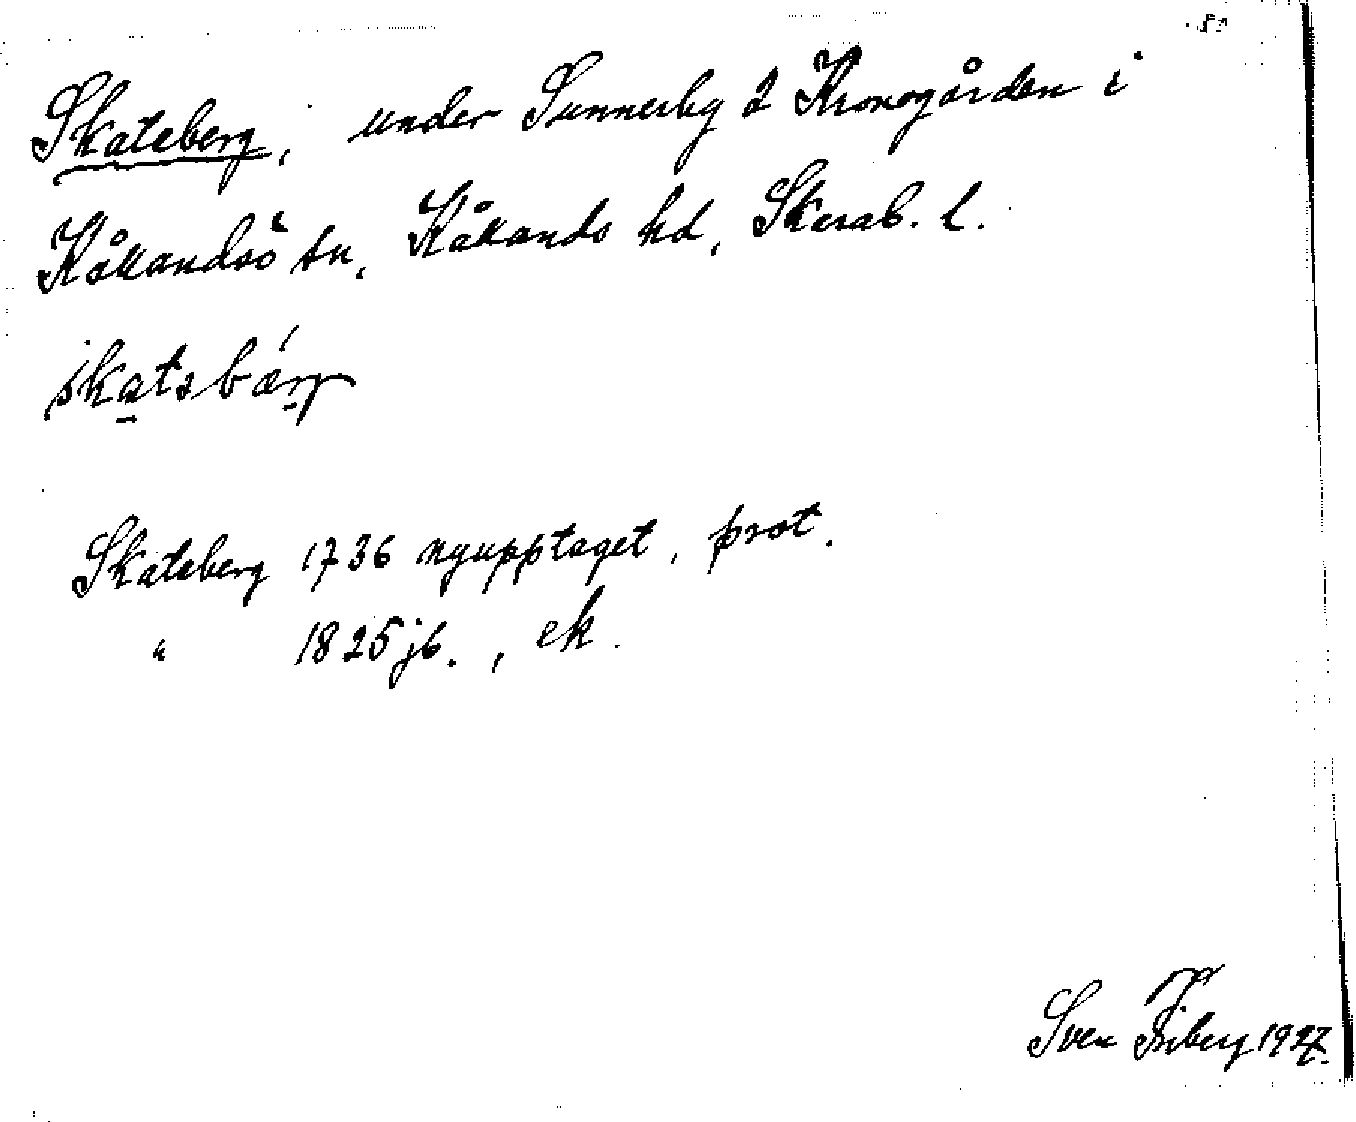 Skateberg, under Sunnerby 2 Kronogården i
Kållandsö sn, Kållands hd, Skarab. l.
skatsbærj
Skateberg 1736 nyupptaget, prot.
" 1825 jb., ek.
Sven Friberg 1927.